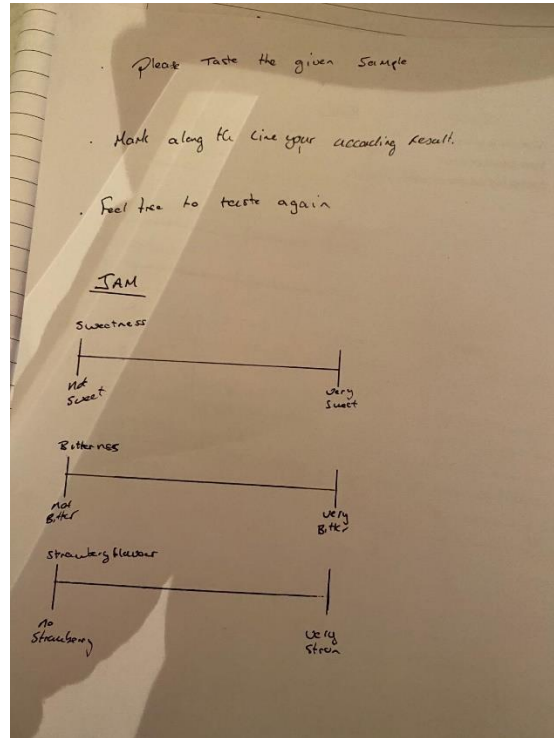 . Please Taste the given Sample
. Mark along the line your according result.
. Feel free to taste again
JAM
Sweetness
not very
Sweet Sweet
Bitterness
not very
Bitter Bitter
Strawbery flavour
no very
Strawberry Stron